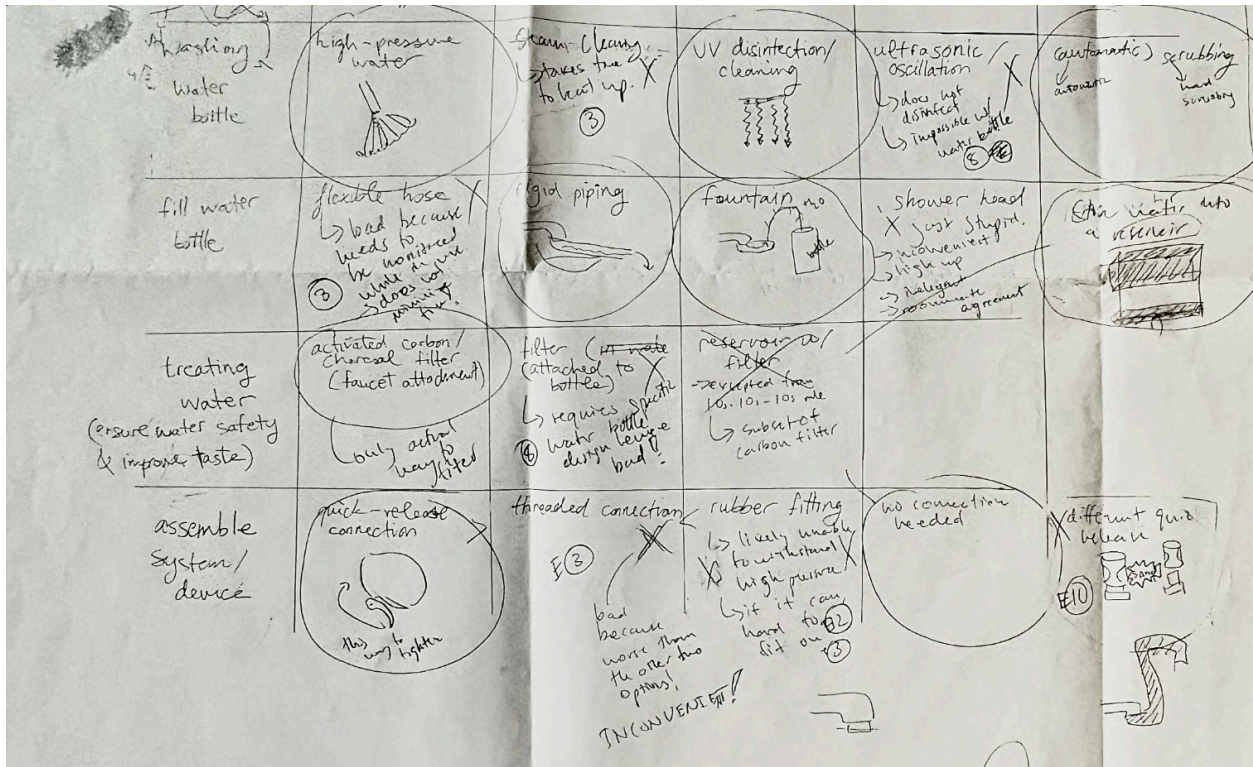 washing
water
bottle
high-pressure
water
steam cleaning
↳ takes time
to heat up. X
③
UV disinfection/
cleaning
ultrasonic /
oscillation
↳ does not
disinfect
↳ impossible w/
water bottle
⑧
(automatic) scrubbing
automatic
hand
scrubbing
fill water
bottle
flexible hose
↳ bad because
needs to
be monitored
while in use
→ does not
③
rigid piping
fountain
H₂O
bottle
shower head
X just stupid.
→ inconvenient
→ high up
→ inelegant
→ roommate
agreement
a reservoir
treating
water
(ensure water safety
& improve taste)
activated carbon/
charcoal filter
(faucet attachment)
↳ only actual
way to
filter
filter
(attached to
bottle)
↳ requires specific
⑧ water bottle
design
bad!
reservoir w/
filter
→ excepted from
10s, 10s-10s rule
↳ subset of
carbon filter
assemble
system/
device
quick-release
connection
this
way to
tighten
threaded connection
E③
bad
because
worse than
the other two
options!
INCONVENIENT!
rubber fitting
↳ likely unable
to withstand
high pressure
↳ if it can,
hard to
fit on
E2
③
no connection
needed
X different quick
release
E10